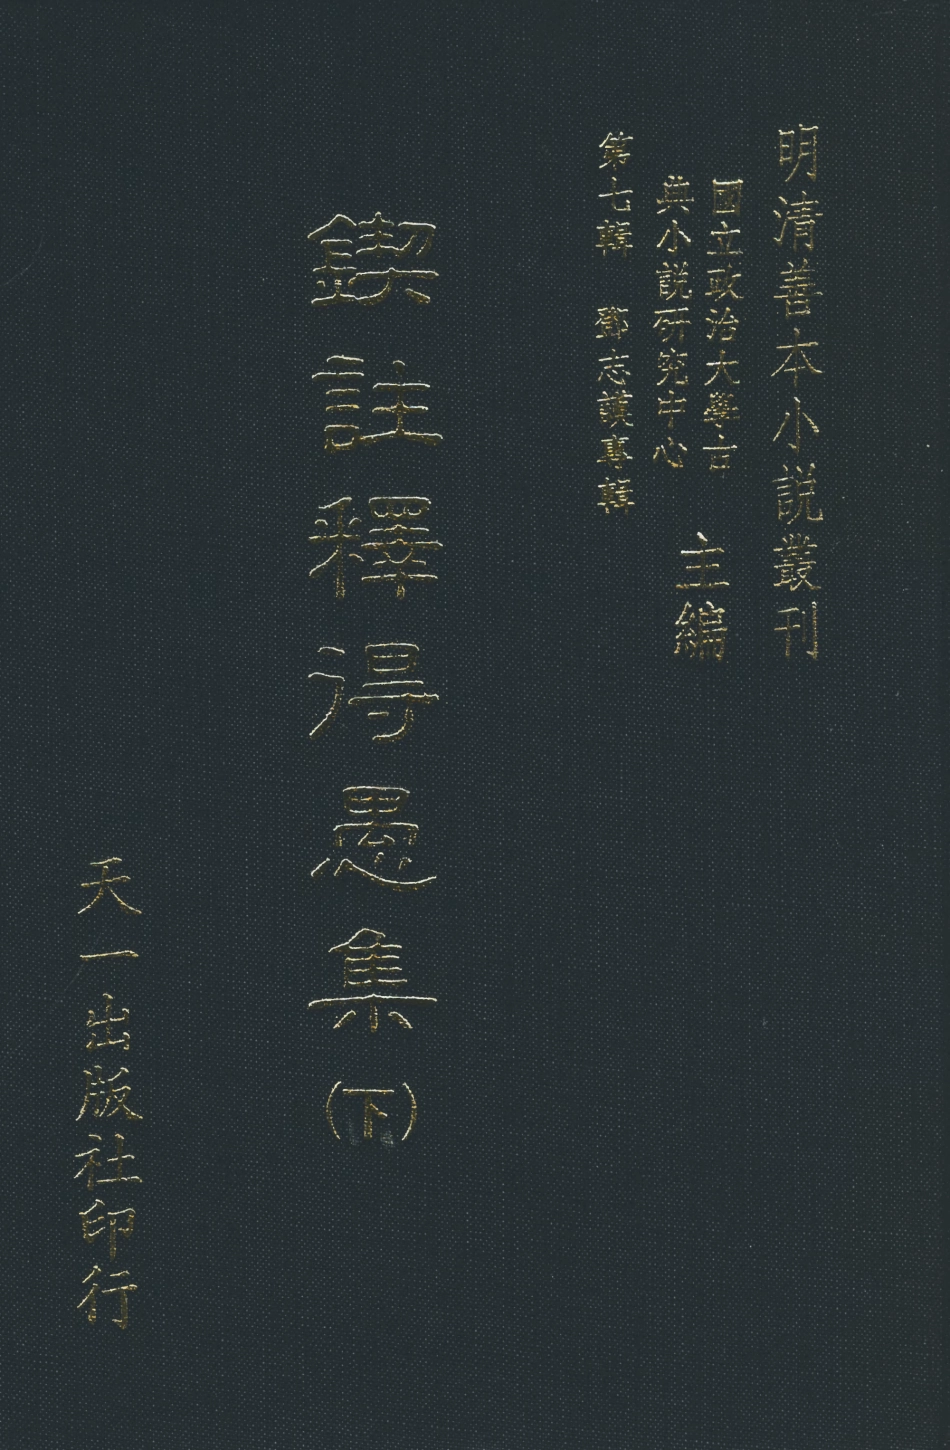 明清善本小説叢刊
國立政治大學古
典小説研究中心
主編
第七輯 鄧志謨專輯
鍥註釋得愚集(下)
天一出版社印行